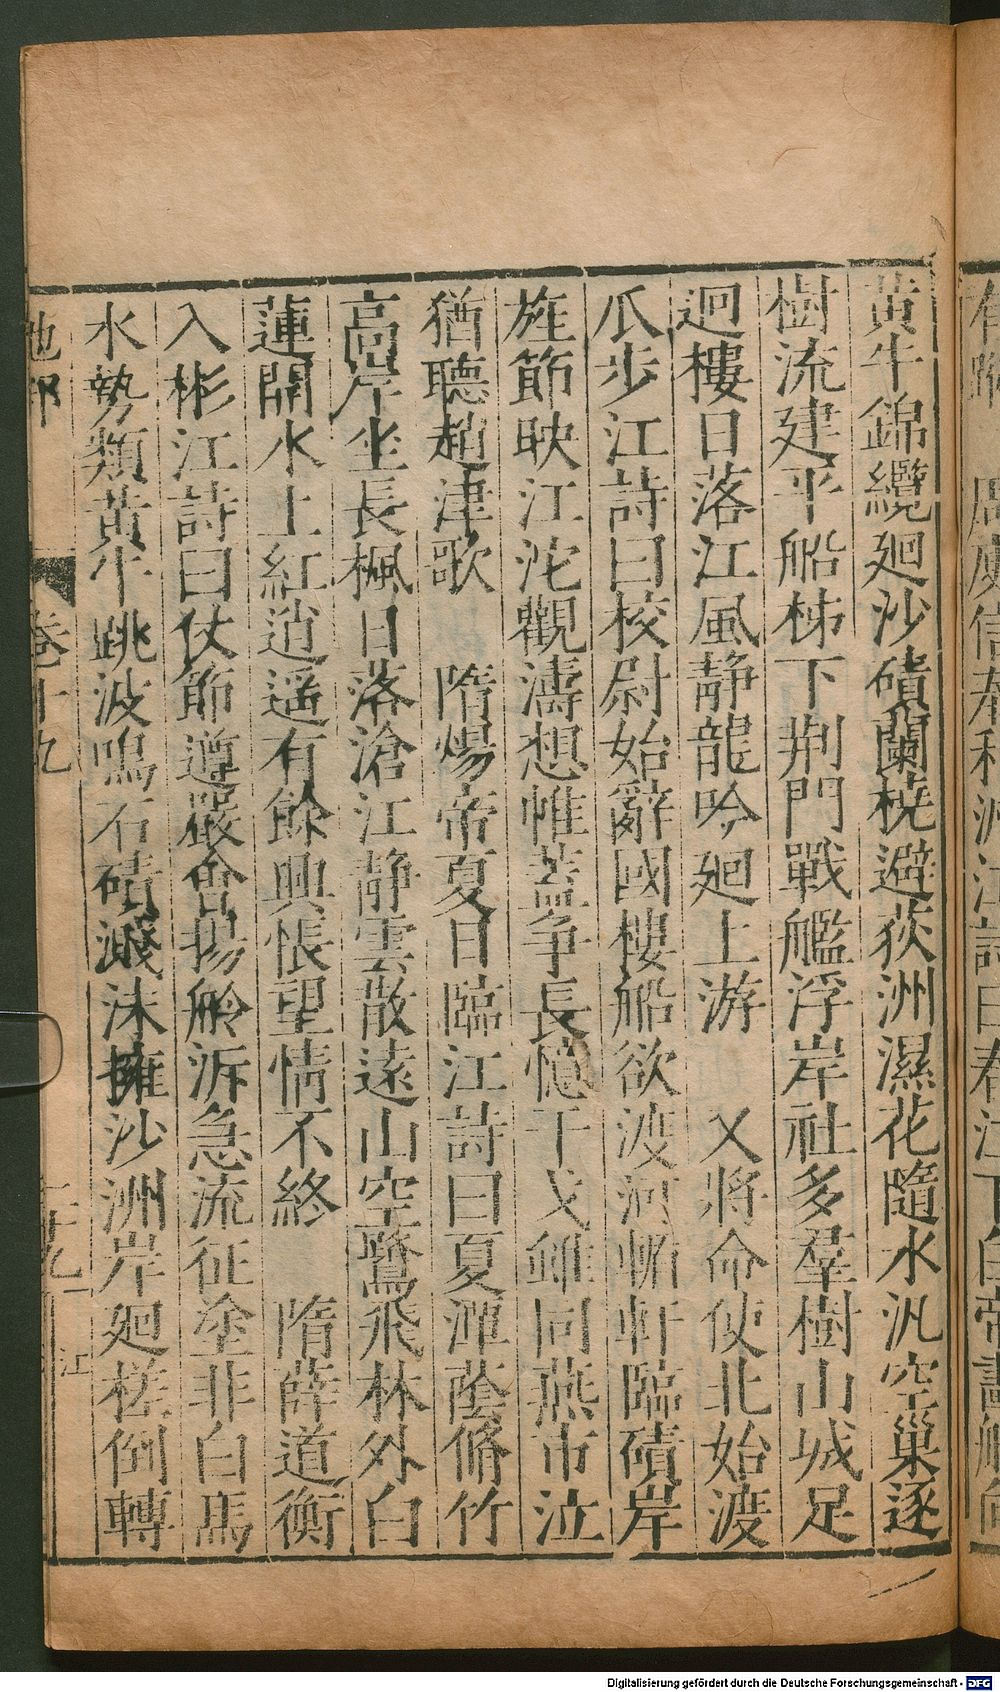 黄牛錦纜廻沙磧蘭橈避荻洲濕花隨水汎空巢逐
樹流建平船柹下荆門戰艦浮岸社多羣樹山城足
迥樓日落江風靜龍吟廻上游　又將命使北始渡
瓜步江詩曰校尉始辭國樓船欲渡河輶軒臨磧岸
旌節映江沱觀濤想帷蓋爭長憶干戈雖同燕市泣
猶聽趙津歌　隋煬帝夏日臨江詩曰夏潭蔭脩竹
高岸坐長楓日落滄江靜雲散遠山空鷺飛林外白
蓮開水上紅逍遥有餘興悵望情不終　隋薛道衡
入彬江詩曰仗節遵嚴會揚舲泝急流征塗非白馬
水勢類黄牛跳波鳴石磧濺沫擁沙洲岸廻槎倒轉
地部　卷十九　江
周庾信奉和江詩曰春江下白帝畫舸向
Digitalisierung gefördert durch die Deutsche Forschungsgemeinschaft - DFG